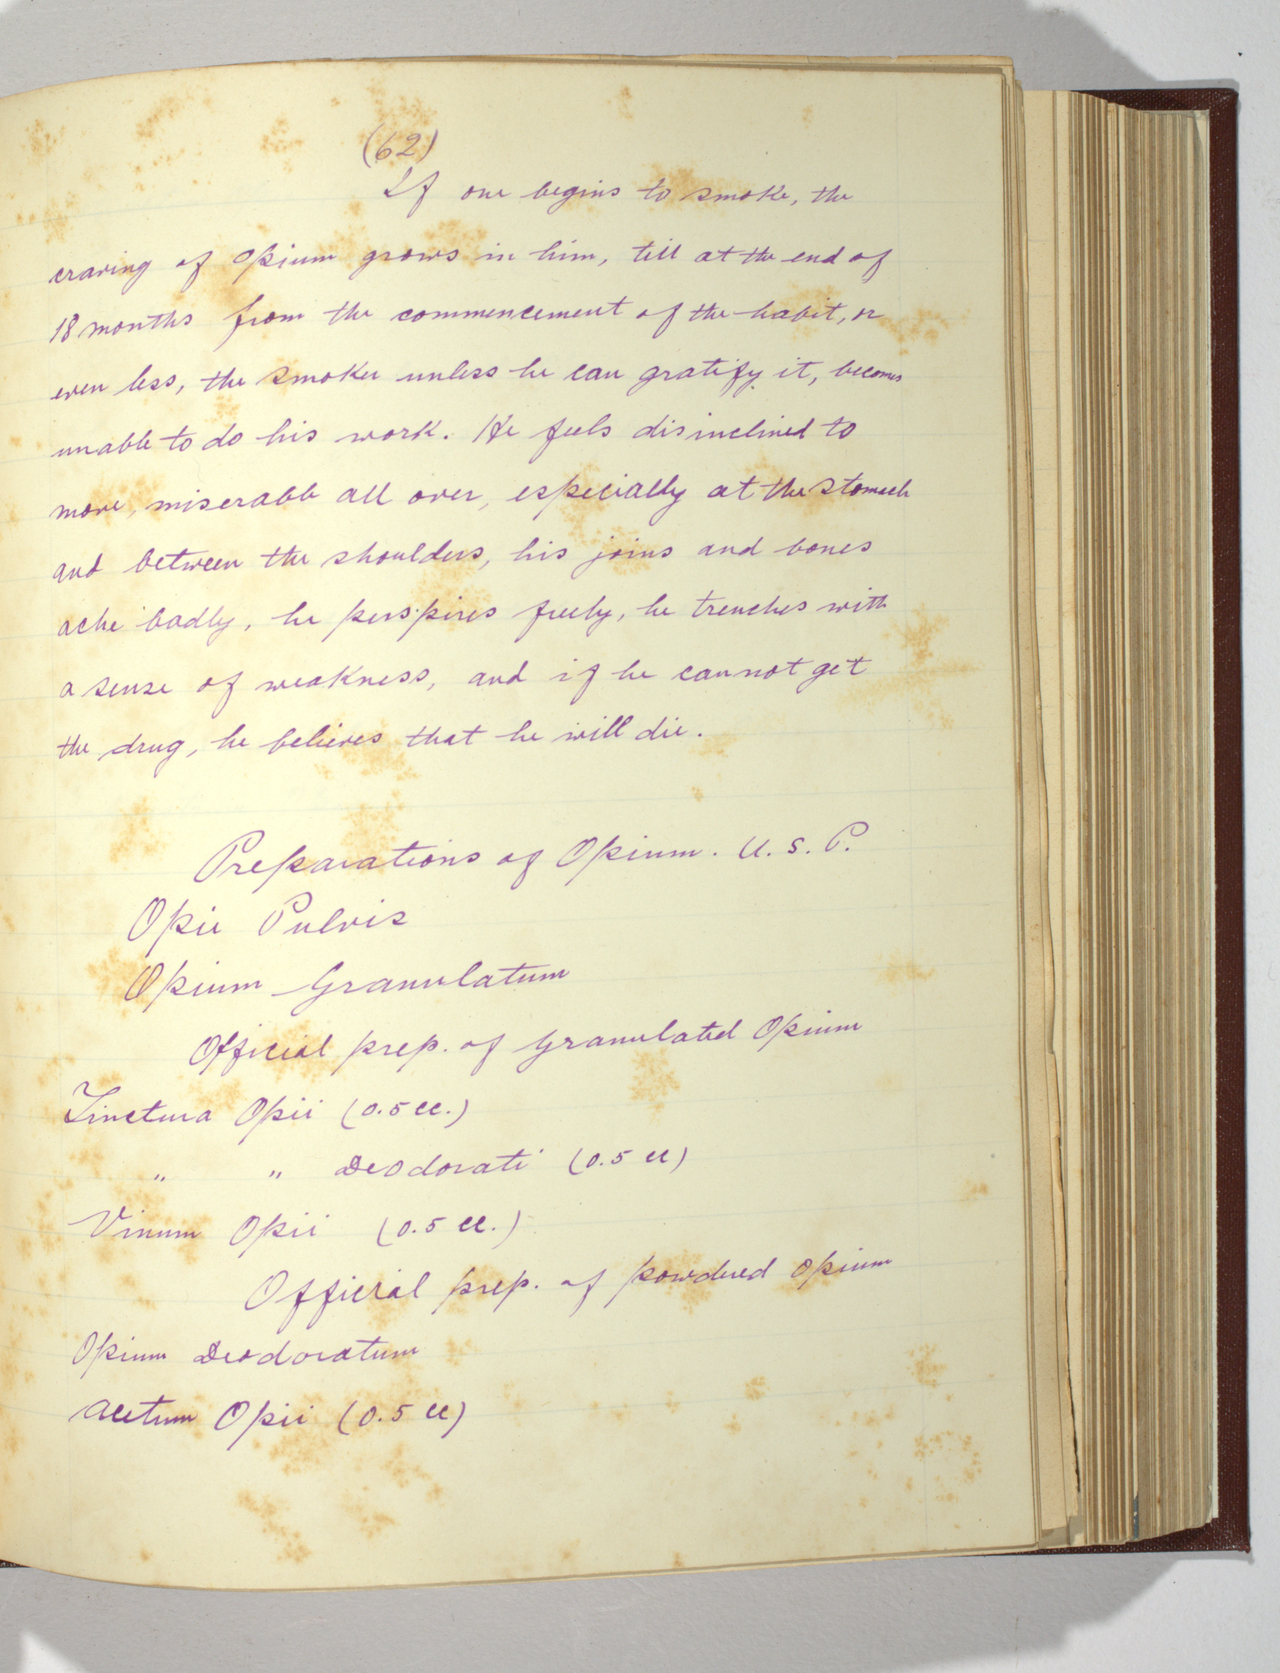 (62)
If one begins to smoke, the
craving of Opium grows in him, till at the end of
18 months from the commencement of the habit, or
even less, the smoker unless he can gratify it, becomes
unable to do his work. He feels disinclined to
move, miserable all over, especially at the stomach
and between the shoulders, his joins and bones
ache badly, he perspires freely, he trenches with
a sense of weakness, and if he cannot get
the drug, he believes that he will die.
Preparations of Opium. U. S. P.
Opii Pulvis
Opium Granulatum
Official prep. of Granulated Opium
Tinctura Opii (0.5 cc.)
" " Deodorati (0.5 cc)
Vinum Opii (0.5 cc.)
Official prep. of powdered opium
Opium Deodoratum
Acetum Opii (0.5 cc)